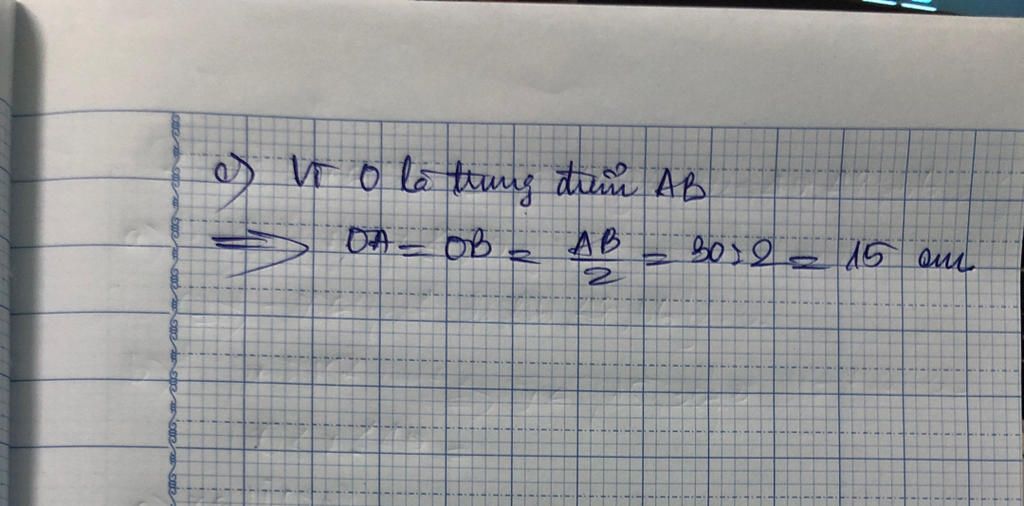 c) Vì O là trung điểm AB
=> OA = OB = AB/2 = 30 : 2 = 15 cm